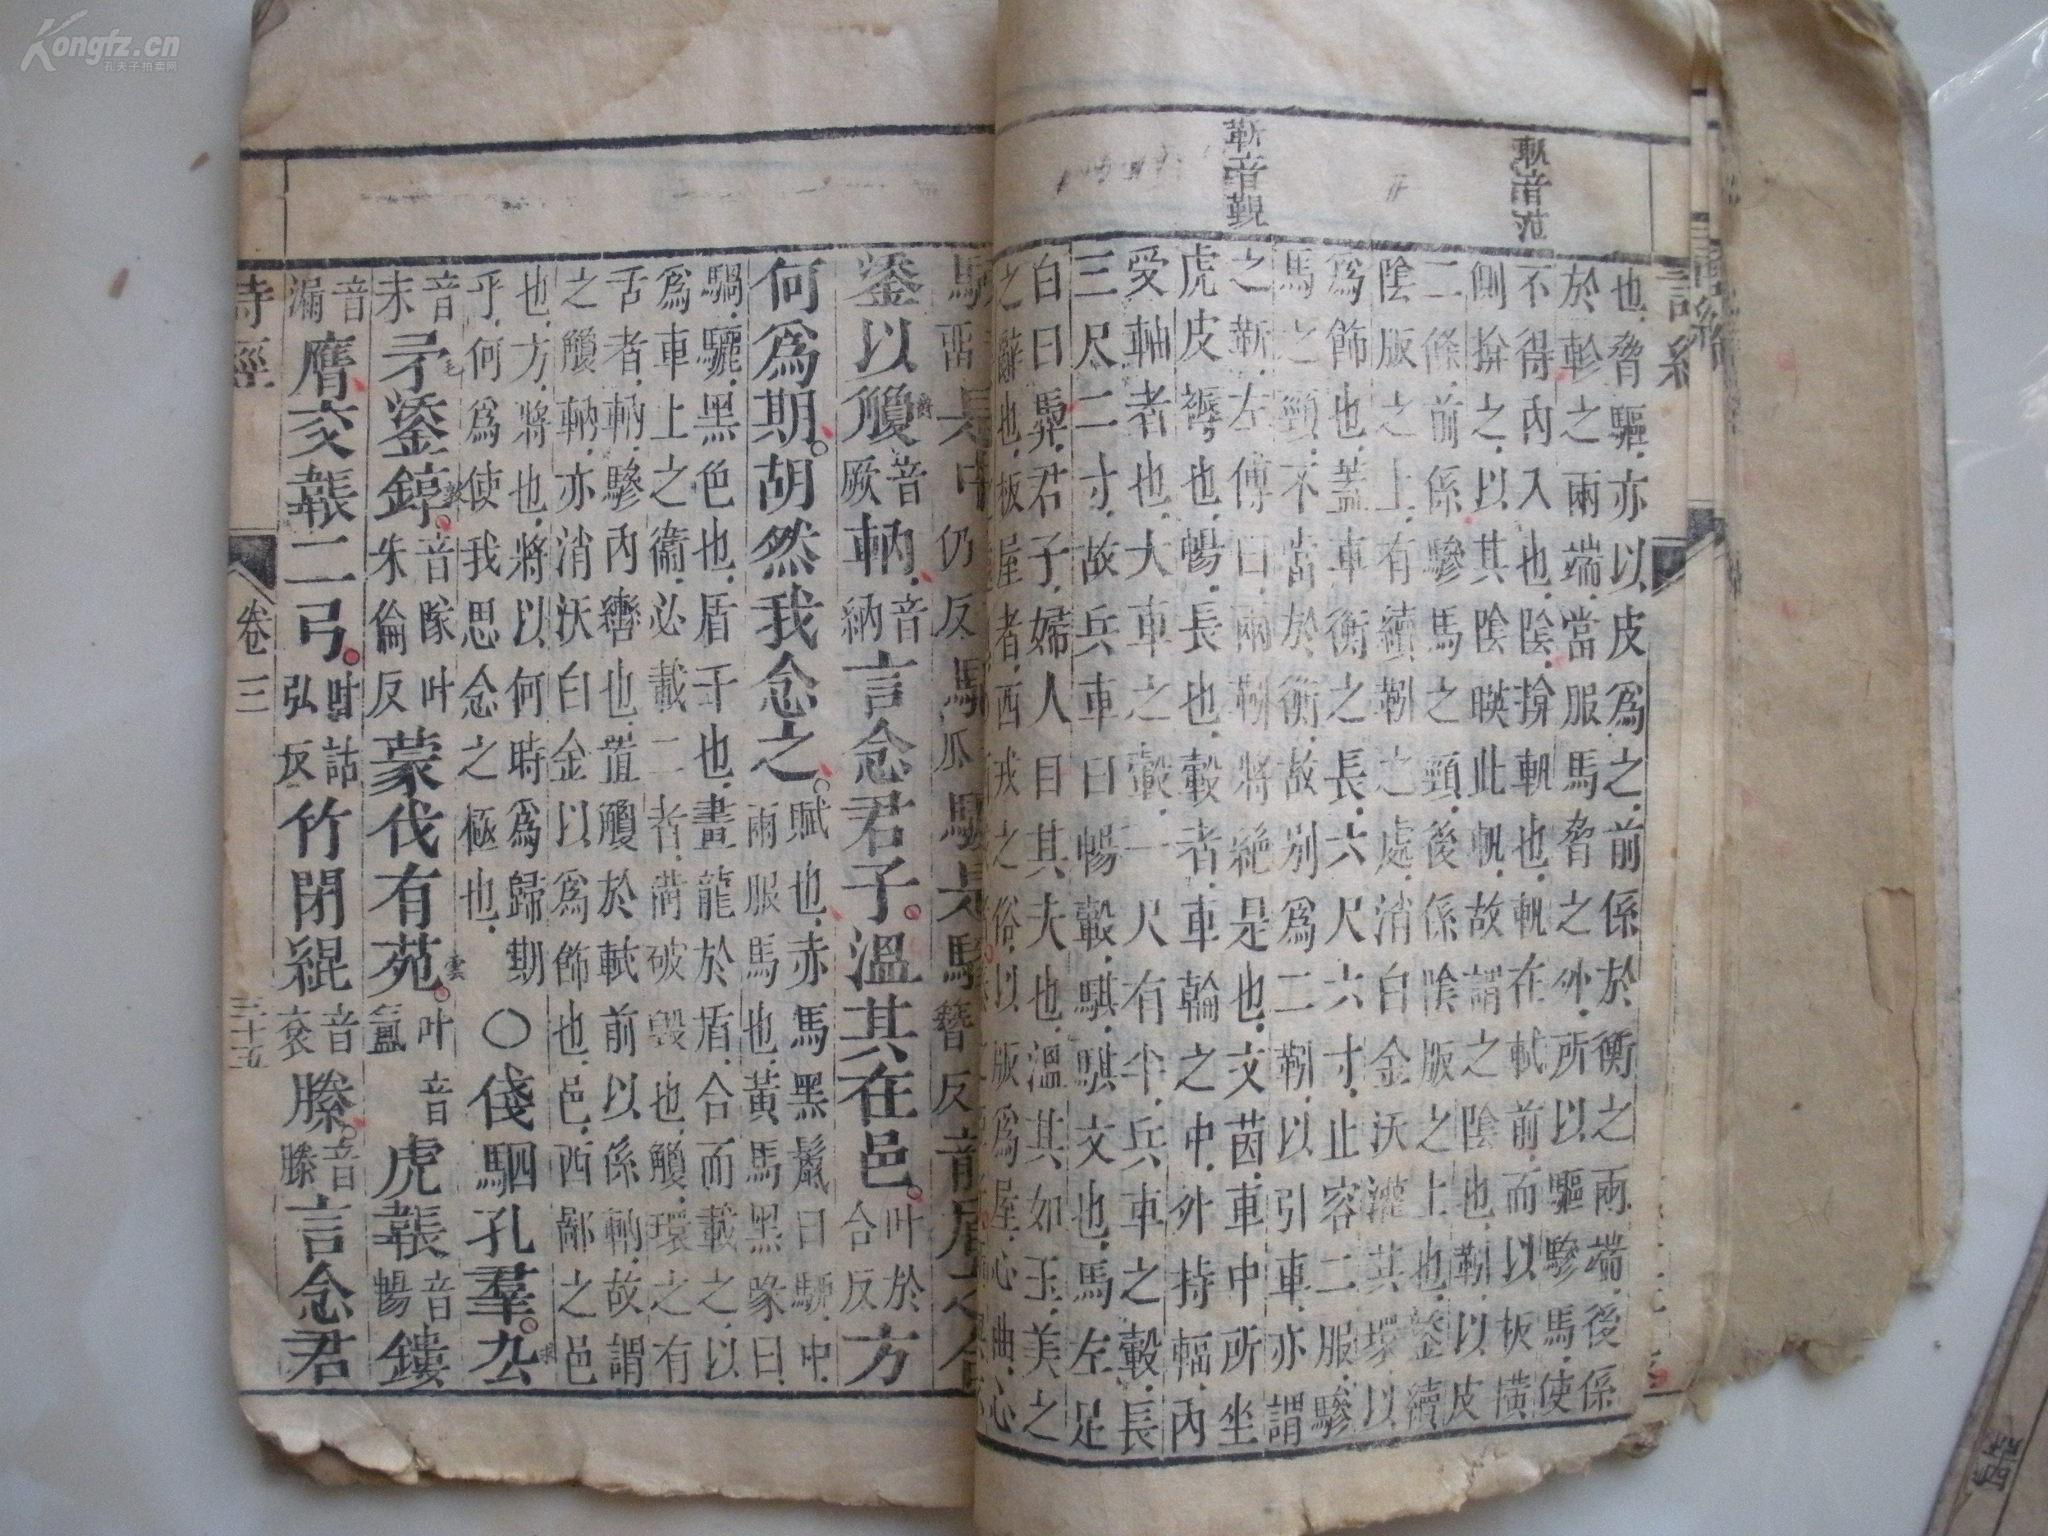 Kongfz.cn
孔夫子拍卖网
軓音范
靳音覲
也脅驅亦以皮爲之前係於衡之兩端後係
於軫之兩端當服馬脅之外所以驅驂馬使
不得內入也陰揜軓也軓在軾前而以板橫
側揜之以其陰暎此軓故謂之陰也靷以皮
二條前係驂馬之頸後係陰版之上也鋈續
陰版之上有續靷之處消白金沃灌其環以
爲飾也蓋車衡之長六尺六寸止容二服驂
馬之頸不當於衡故別爲二靷以引車亦謂
之靳左傳曰兩靷將絕是也文茵車中所坐
虎皮褥也暢長也轂者車輪之中外持輻內
受軸者也大車之轂一尺有半兵車之轂長
三尺二寸故兵車曰暢轂騏騏文也馬左足
白曰馵君子婦人目其夫也溫其如玉美之
之辭也板屋者西戎之俗以版爲屋心曲心
鋈以觼音厥軜音納言念君子溫其在邑叶於合反方
何爲期胡然我念之賦也赤馬黑鬣曰駵中兩服馬也黃馬黑喙曰
騧驪黑色也盾干也畫龍於盾合而載之以
爲車上之衞必載二者備破毀也觼環之有
舌者軜驂內轡也置觼於軾前以係軜故謂
之觼軜亦消沃白金以爲飾也邑西鄙之邑
也方將也將以何時爲歸期
乎何爲使我思念之極也○俴駟孔羣厹
音求矛鋈錞音隊叶朱倫反蒙伐有苑音氳叶虎韔音暢鏤
音漏膺交韔二弓叶姑弘反竹閉緄音衮縢音滕言念君
詩經
卷三
三十五